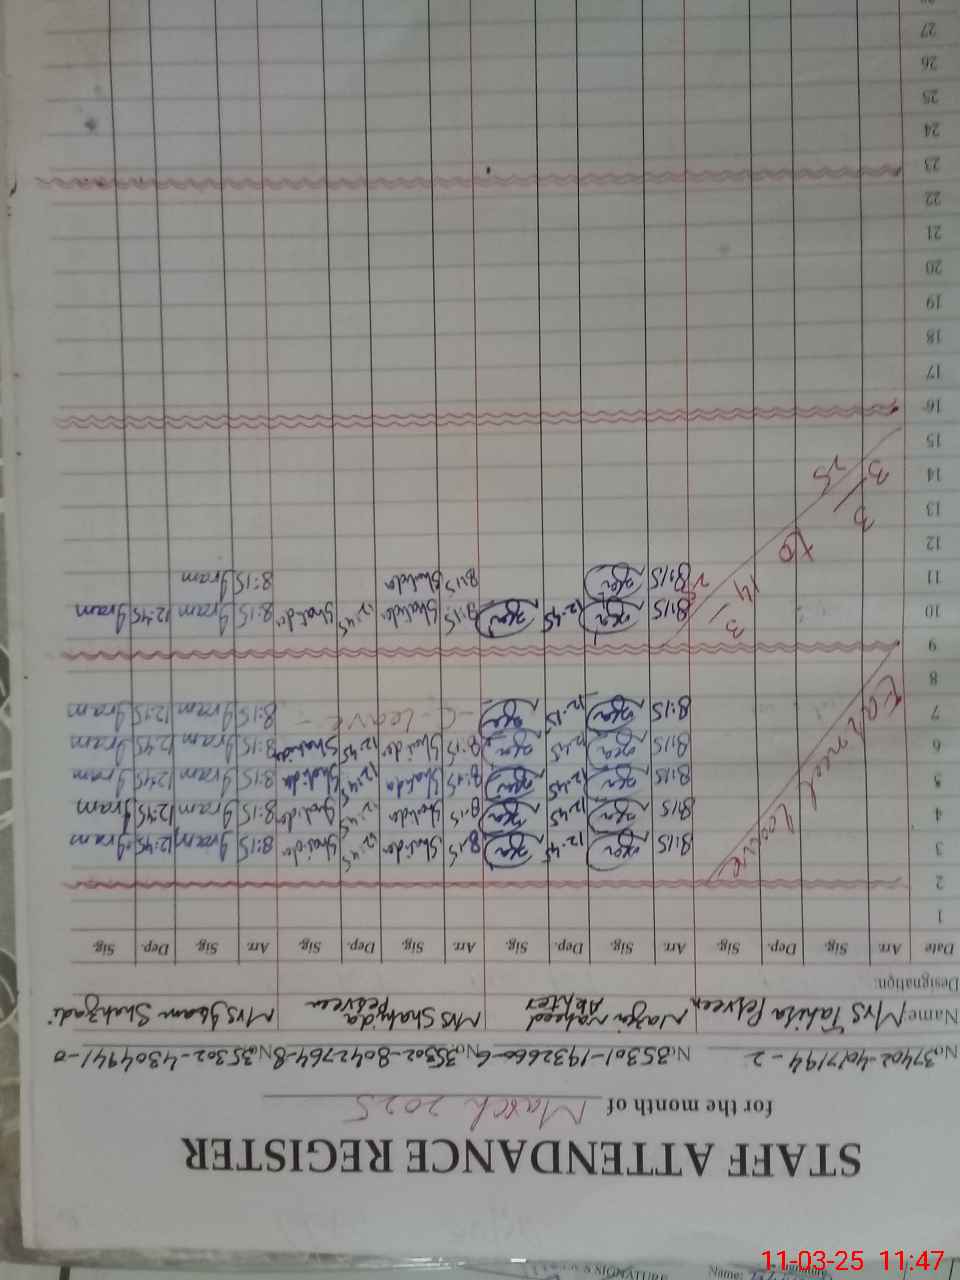 STAFF ATTENDANCE REGISTER
for the month of March 2025
No. 37402-4017194-2 No. 35301-1932660-6 No. 35302-8042764-8 No. 35302-4304941-0
Name Mrs Tahira Perveen Nazia Naheed Akhter Mrs Shahida Perveen Mrs Iram Shahzadi
Designation:
Date Arr. Sig. Dep. Sig. Arr. Sig. Dep. Sig. Arr. Sig. Dep. Sig. Arr. Sig. Dep. Sig.
1
2
3 8:15 12:45 8:15 Shaida 12:45 Shaida 8:15 Iram 12:45 Iram
4 8:15 12:45 8:15 Shaida 12:45 Shaida 8:15 Iram 12:45 Iram
5 8:15 12:45 8:15 Shaida 12:45 Shaida 8:15 Iram 12:45 Iram
6 8:15 12:45 8:15 Shaida 12:45 Shaida 8:15 Iram 12:45 Iram
7 8:15 12:15 - C-Leave - 8:15 Iram 12:15 Iram
Earned Leave
8
9
10 8:15 12:45 8:15 Shaida 12:45 Shaida 8:15 Iram 12:45 Iram
11 8:15 8:15 Shaida 8:15 Iram
3/3/25 to 14/3/25
12
13
14
15
16
17
18
19
20
21
22
23
24
25
26
27
11-03-25 11:47